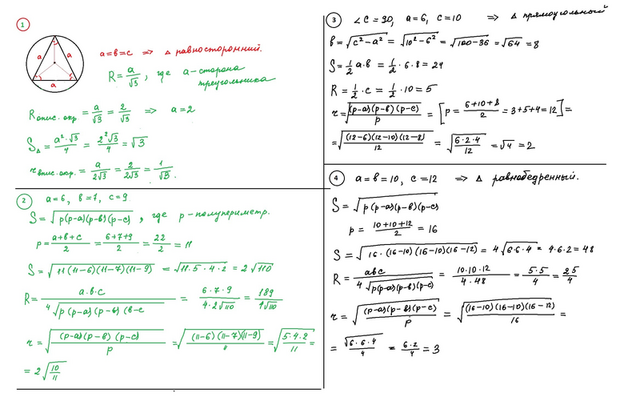 1
a=b=c => Δ равносторонний.
R = a/√3, где a-сторона треугольника
R опис. окр. = a/√3 = 2/√3 => a=2
S△ = a²·√3/4 = 2²√3/4 = √3
r впис. окр. = a/2√3 = 2/2√3 = 1/√3.
2
a=6, b=7, c=9
S = √p(p-a)(p-b)(p-c), где p-полупериметр.
p = a+b+c/2 = 6+7+9/2 = 22/2 = 11
S = √11(11-6)(11-7)(11-9) = √11·5·4·2 = 2√110
R = a·b·c/4√p(p-a)(p-b)(p-c = 6·7·9/4·2√110 = 189/4√110
r = √(p-a)(p-b)(p-c)/p = √(11-6)(11-7)(11-9)/11 = √5·4·2/11 =
= 2√10/11
3
∠C = 90, a=6, c=10 => Δ прямоугольный
b = √c²-a² = √10²-6² = √100-36 = √64 = 8
S = 1/2 a·b = 1/2 · 6·8 = 24
R = 1/2 · c = 1/2 · 10 = 5
r = √(p-a)(p-b)(p-c)/p = [p = 6+10+8/2 = 3+5+4 = 12] =
= √(12-6)(12-10)(12-8)/12 = √6·2·4/12 = √4 = 2
4
a=b=10, c=12 => Δ равнобедренный.
S = √p(p-a)(p-b)(p-c)
p = 10+10+12/2 = 16
S = √16·(16-10)(16-10)(16-12) = 4√6·6·4 = 4·6·2 = 48
R = abc/4√p(p-a)(p-b)(p-c) = 10·10·12/4·48 = 5·5/4 = 25/4
r = √(p-a)(p-b)(p-c)/p = √(16-10)(16-10)(16-12)/16 =
= √6·6·4/4 = 6·2/4 = 3